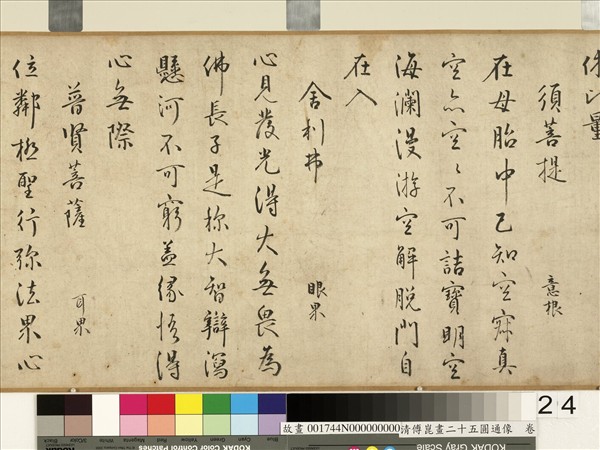 量
須菩提 意根
在母胎中已知空寂真
空亦空〻不可詰寶明空
海瀾漫游空解脫門自
在入
舍利弗 眼界
心見發光得大無畏為
佛長子是称大智辯瀉
懸河不可窮蓋緣悟得
心無際
普賢菩薩 耳界
位鄰極聖行弥法界心
24
故畫 001744N000000000清傅崑畫二十五圓通像 卷
KODAK Color Control Patches
KODAK Gray Scale